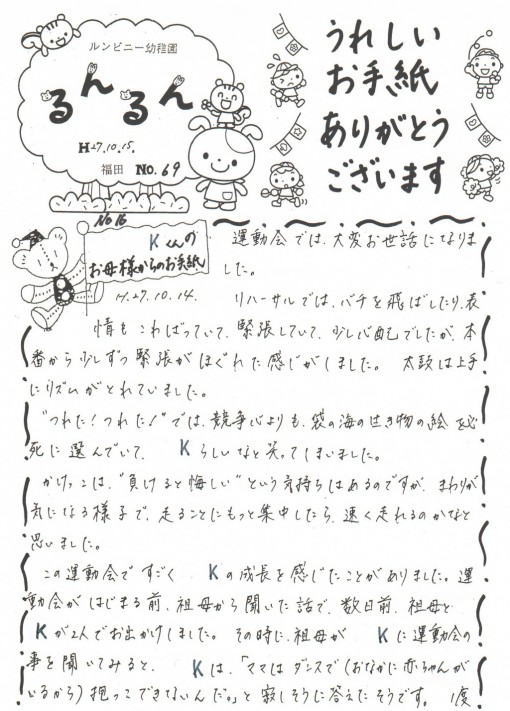 ルンビニー幼稚園
るんるん
H27.10.15.
福田 No.69
うれしい
お手紙
ありがとう
ございます
No16
Kくんの
お母様からのお手紙
H.27.10.14.
運動会では、大変お世話になりま
した。
リハーサルでは、バチを飛ばしたり、表
情もこわばっていて、緊張していて、少し心配でしたが、本
番から少しずつ緊張がほぐれた感じがしました。 太鼓は上手
にリズムがとれていました。
"つれた!つれた!"では、競争心よりも、袋の海の生き物の絵を必
死に選んでいて、 Kらしいなと笑ってしまいました。
かけっこは、"負けると悔しい"という気持ちはあるのですが、まわりが
気になる様子で、走ることにもっと集中したら、速く走れるのかなと
思いました。
この運動会ですごく Kの成長を感じたことがありました。運
動会がはじまる前、祖母から聞いた話で、数日前、祖母と
Kが2人でお出かけしました。 その時に、祖母が Kに運動会の
事を聞いてみると、 Kは、「ママはダンスで(おなかに赤ちゃんが
いるから)抱っこできないんだ。」と寂しそうに答えたそうです。 1度